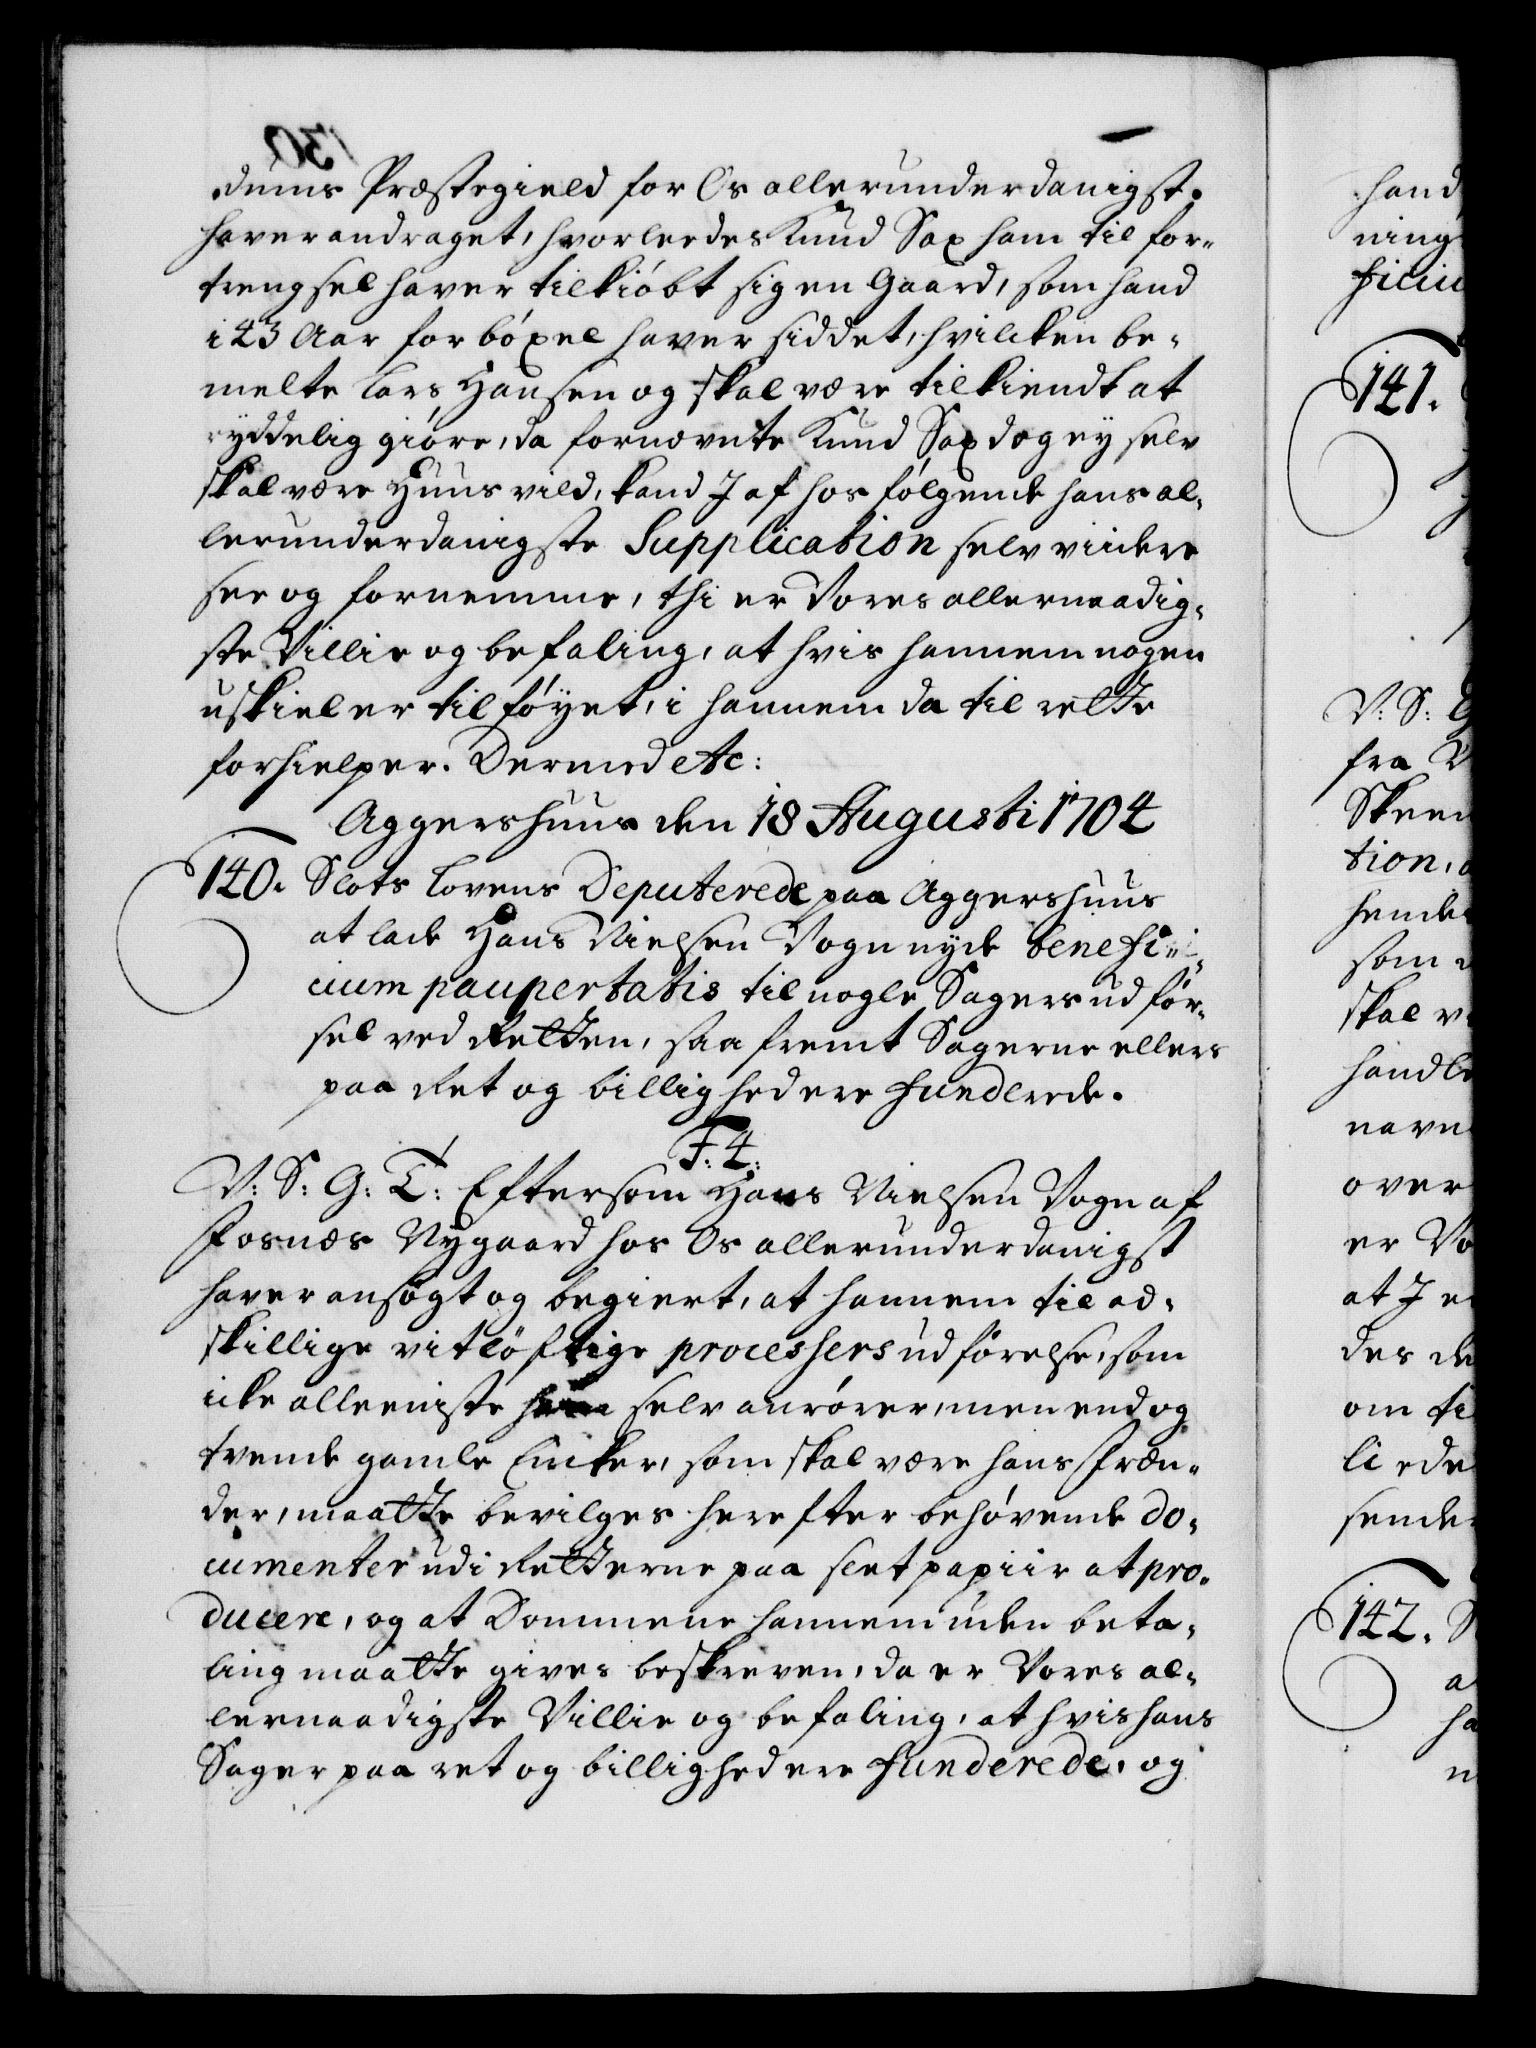 dums Præstegield for Os allerunderdanigst.
haver andraget, hvorleedes Knud Sax ham til for-
trengsel haver tilkiøbt sig en Gaard, som hand
i 43 Aar for böxel haver siddet, hvilcken be-
melte Lars Hansen og skal være tilkiendt at
ryddelig giøre, da fornevnte Knud Sax dog ey selv
skal være Huus vild, kand J af hos følgende hans al-
lerunderdanigste Supplication selv viidere
see og fornemme, thi er Vores allernaadig-
ste Villie og befaling, at hvis hannem nogen
uskiel er tilføyet, i hannem da til rette
forhielper. Dermed etc:
Aggershuus den 18 Augusti 1704
140. Slots Lovens Deputerede paa Aggershuus
at lade Hans Nielsen Vogn nyde benefi-
cium paupertatis til nogle Sagers udför-
sel ved Retten, saa fremt Sagerne ellers
paa Ret og billighed ere funderede.
F: 4:
V: S: G: T: Eftersom Hans Nielsen Vogn af
Fosnæs Nygaard hos Os allerunderdanigst
haver ansøgt og begiert, at hannem til ad-
skillige vitløftige processers udførelse, som
icke alleeniste ham selv anrører, men end og
tvende gamle Encker, som skal være hans Fræn-
der, maatte bevilges herefter behøvende do-
cumenter udi Retterne paa slet papiir at pro-
ducere, og at Dommene hannem uden beta-
ling maatte gives beskreven, da er Vores al-
lernaadigste Villie og befaling, at hvis hans
Sager paa ret og billighed ere funderede, og
hand
ning
ficiu
141.
V: S: G
fra
Skeen
tion,
hende
som
skal
handle
navn
over
er Vo
at J
des de
om ti
li ede
sende
142.